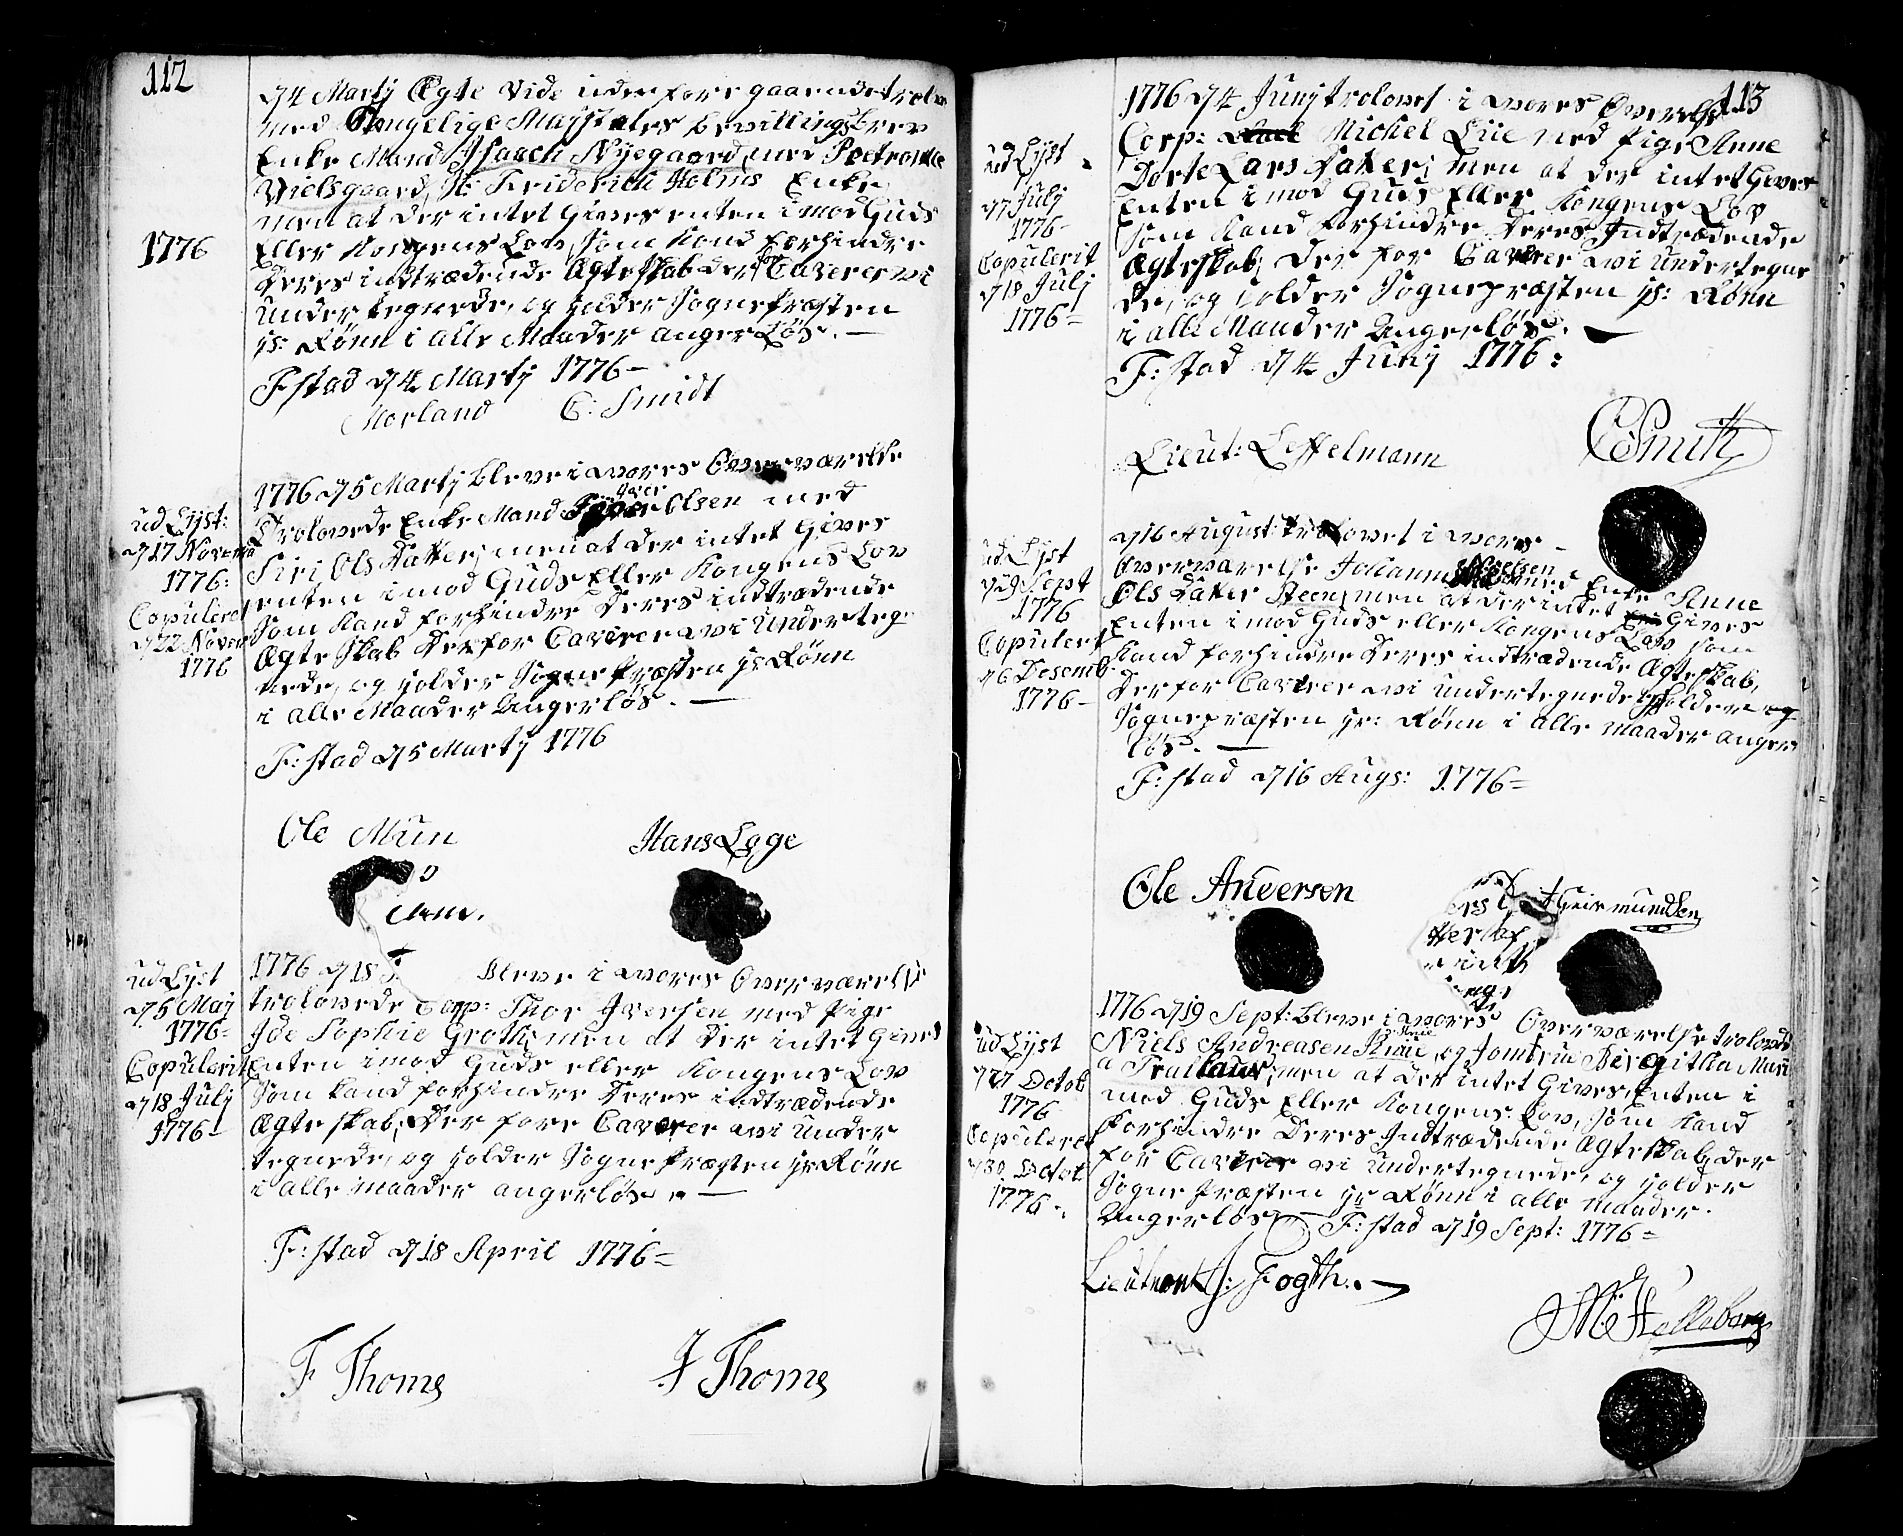 112
1776
d 4 Martij Ægte Vide uden foregaaende trolov
med Kongelige Mayestætes bevillingsbrev
Enke Mand Isaach Nyegaard, med Petronelle
Nielsgaard, Sl: Friderich Holms Enke
men at der intet Gives enten imod Guds
Eller Kongens Lov, som kand forhindre
Deres indtrædende Ægteskab derfor Caverer vi
undertegnede, og holder Sognepræsten
hr: Rönn i alle Maader angerlös. —
F:stad d 4 Martij 1776 —
Morland C: Smidt
ud Lyst:
d 17 Novemb
1776:
Copuleret
d 22 Novem
1776
1776 d 5 Martij bleve i vores Overværelse
Trolovede Enke Mand Olsen med
Siri Ols Datter, men at der intet Gives
enten imod Guds Eller Kongens Lov
som Kand forhindre Deres indtrædende
Ægteskab Derfor Caverer vi Underteg-
nede, og holder Sognepræsten hr Rönn
i alle Maader Angerlös. —
F:stad d 5 Martij 1776
Ole Mun Hans Lage
ud Lyst
d 5 Maij
1776-
Copulerit
d 18 Julij
1776-
1776 d 18 Bleve i vores Overværelse
trolovede Corp: Thor Iversen med Pige
Ide Sophie Groth, men at Der intet Gives
Enten imod Guds eller Kongens Lov
som kand forhindre Deres indtrædende
Ægteskab, Derfore Caverer vi under
tegnede, og holder Sognepræsten hr Rönn
i alle maader angerlös. —
F:stad d 18 April 1776 =
F Thoms J Thoms
113
ud Lyst
d 7 Julij
1776-
Copulerit
d 18 Julij
1776 =
1776 d 4 Junij trolovet i vores Overvelse
Corp: Michel Lüe med Pige Anne
Dorte Lars Datter; men at der intet Gives
Enten imod Guds Eller Kongens Lov
som Kand forhindre Deres Indtrædende
Ægteskab, Derfor Caverer vi undertegne
de, og holder Sognepræsten hr: Rönn
i alle Maader Angerlös. —
F:stad d 4 Junij 1776:
Lieut: Leffelmann CSmith
ud Lyst
d 29 Sept
1776
Copulert
d 6 Desemb
1776 -
d 16 August: trolovet i vores
Overværelse Johannes Noelsen med Enke Anne
Ols Datter Steen, men at der intet Gives
Enten imod Guds eller Kongens Lov som
Kand forhindre Deres indtrædende Ægteskab,
Derfor Caverer vi undertegnede og holder
Sognepræsten hr: Rönn i alle maader anger
lös. —
F:stad d 16 Augs: 1776 =
Ole Andersen Geirmundsen
ud Lyst
d 27 Octob
1776
Copuleret
d 30 Octob
1776 -
1776 d 19 Sept: bleve i vores Overværelse trolovede
Niels Andreasen, og Jomfrue Birgitha Mari
a Trallaus, men at der intet Gives, Enten i
mod Guds Eller Kongens Lov, som Kand
forhindre Deres Indtrædende Ægteskab, der
for Caverer vi undertegnede, og holder
Sognepræsten hr Rönn i alle maader.
Angerlös F:stad d 19 Sept: 1776 =
Lieutnant J: Fogth. M Helleberg